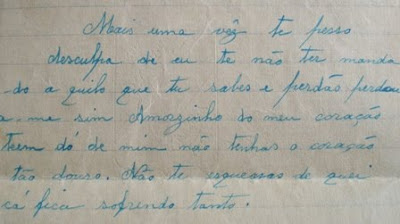 Mais uma vêz te pesso
desculpa de eu te não ter manda
do a quilo que tu sabes e perdão perdoa
a me sim Amorzinho do meu coração
teem dó de mim não tenhas o coração
tão douro. Não te esquessas de quei
cá fica sofrendo tanto.